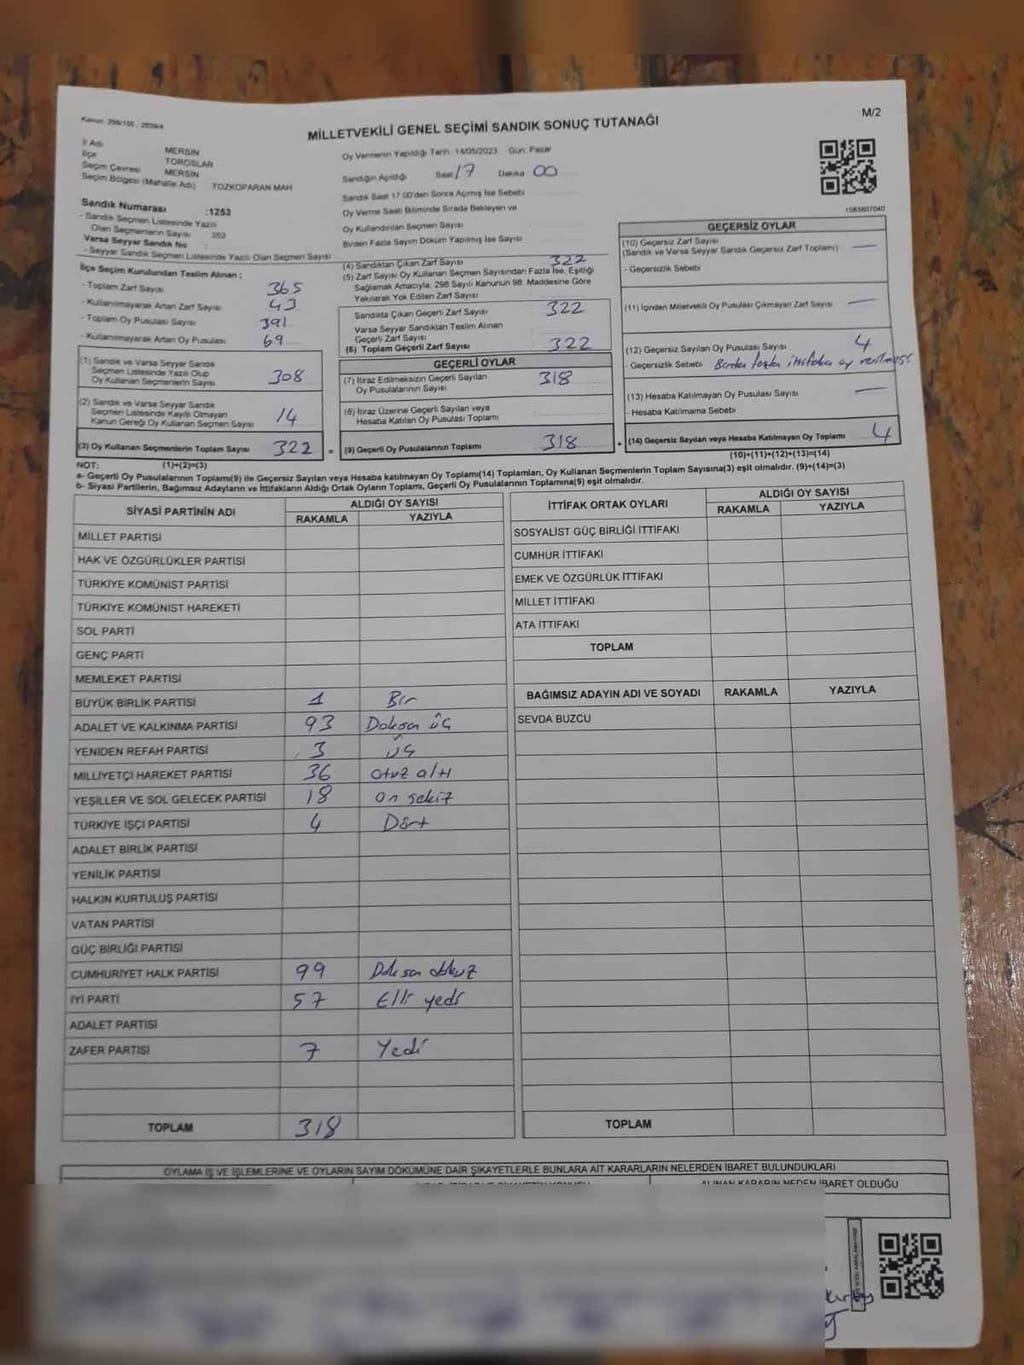 Kanun: 298/105 , 2839/4
M/2
MİLLETVEKİLİ GENEL SEÇİMİ SANDIK SONUÇ TUTANAĞI
İl Adı MERSİN
İlçe TOROSLAR
Seçim Çevresi MERSİN
Seçim Bölgesi (Mahalle Adı) TOZKOPARAN MAH
Sandık Numarası :1253
- Sandık Seçmen Listesinde Yazılı
Olan Seçmenlerin Sayısı 353
Varsa Seyyar Sandık No :
- Seyyar Sandık Seçmen Listesinde Yazılı Olan Seçmen Sayısı
Oy Vermenin Yapıldığı Tarih :14/05/2023 Gün: Pazar
Sandığın Açıldığı Saat 17 Dakika 00
Sandık Saat 17:00'den Sonra Açımış İse Sebebi
Oy Verme Saati Bitiminde Sırada Bekleyen ve
Oy Kullandırılan Seçmen Sayısı
Birden Fazla Sayım Döküm Yapılmış İse Sayısı
1085807040
İlçe Seçim Kurulundan Teslim Alınan :
- Toplam Zarf Sayısı 365
- Kullanılmayarak Artan Zarf Sayısı 43
- Toplam Oy Pusulası Sayısı 391
- Kullanılmayarak Artan Oy Pusulası 69
(1) Sandık ve Varsa Seyyar Sandık
Seçmen Listesinde Yazılı Olup
Oy Kullanan Seçmenlerin Sayısı 308
(2) Sandık ve Varsa Seyyar Sandık
Seçmen Listesinde Kayıtlı Olmayan
Kanun Gereği Oy Kullanan Seçmen Sayısı 14
(3) Oy Kullanan Seçmenlerin Toplam Sayısı 322
(1)+(2)=(3)
(4) Sandıktan Çıkan Zarf Sayısı 322
(5) Zarf Sayısı Oy Kullanan Seçmen Sayısından Fazla İse, Eşitliği
Sağlamak Amacıyla, 298 Sayılı Kanunun 98. Maddesine Göre
Yakılarak Yok Edilen Zarf Sayısı
Sandıkta Çıkan Geçerli Zarf Sayısı 322
Varsa Seyyar Sandıktan Teslim Alınan
Geçerli Zarf Sayısı
(6) Toplam Geçerli Zarf Sayısı 322
GEÇERLİ OYLAR
(7) İtiraz Edilmeksizin Geçerli Sayılan
Oy Pusulalarının Sayısı 318
(8) İtiraz Üzerine Geçerli Sayılan veya
Hesaba Katılan Oy Pusulası Toplamı
= (9) Geçerli Oy Pusulalarının Toplamı 318
GEÇERSİZ OYLAR
(10) Geçersiz Zarf Sayısı
(Sandık ve Varsa Seyyar Sandık Geçersiz Zarf Toplamı) —
- Geçersizlik Sebebi
(11) İçinden Milletvekili Oy Pusulası Çıkmayan Zarf Sayısı —
(12) Geçersiz Sayılan Oy Pusulası Sayısı 4
- Geçersizlik Sebebi Birden fazla ittifaka oy verilmesi
(13) Hesaba Katılmayan Oy Pusulası Sayısı —
- Hesaba Katılmama Sebebi
+ (14) Geçersiz Sayılan veya Hesaba Katılmayan Oy Toplamı 4
(10)+(11)+(12)+(13)=(14)
NOT:
a- Geçerli Oy Pusulalarının Toplamı(9) ile Geçersiz Sayılan veya Hesaba katılmayan Oy Toplamı(14) Toplamları, Oy Kullanan Seçmenlerin Toplam Sayısına(3) eşit olmalıdır. (9)+(14)=(3)
b- Siyasi Partilerin, Bağımsız Adayların ve İttifakların Aldığı Ortak Oyların Toplamı, Geçerli Oy Pusulalarının Toplamına(9) eşit olmalıdır.
SİYASİ PARTİNİN ADI ALDIĞI OY SAYISI
RAKAMLA YAZIYLA
MİLLET PARTİSİ
HAK VE ÖZGÜRLÜKLER PARTİSİ
TÜRKİYE KOMÜNİST PARTİSİ
TÜRKİYE KOMÜNİST HAREKETİ
SOL PARTİ
GENÇ PARTİ
MEMLEKET PARTİSİ
BÜYÜK BİRLİK PARTİSİ 1 Bir
ADALET VE KALKINMA PARTİSİ 93 Doksan üç
YENİDEN REFAH PARTİSİ 3 üç
MİLLİYETÇİ HAREKET PARTİSİ 36 otuz altı
YEŞİLLER VE SOL GELECEK PARTİSİ 18 on sekiz
TÜRKİYE İŞÇİ PARTİSİ 4 Dört
ADALET BİRLİK PARTİSİ
YENİLİK PARTİSİ
HALKIN KURTULUŞ PARTİSİ
VATAN PARTİSİ
GÜÇ BİRLİĞİ PARTİSİ
CUMHURİYET HALK PARTİSİ 99 Doksan dokuz
İYİ PARTİ 57 Elli yedi
ADALET PARTİSİ
ZAFER PARTİSİ 7 Yedi
TOPLAM 318
İTTİFAK ORTAK OYLARI ALDIĞI OY SAYISI
RAKAMLA YAZIYLA
SOSYALİST GÜÇ BİRLİĞİ İTTİFAKI
CUMHUR İTTİFAKI
EMEK VE ÖZGÜRLÜK İTTİFAKI
MİLLET İTTİFAKI
ATA İTTİFAKI
TOPLAM
BAĞIMSIZ ADAYIN ADI VE SOYADI RAKAMLA YAZIYLA
SEVDA BUZCU
TOPLAM
OYLAMA İŞ VE İŞLEMLERİNE VE OYLARIN SAYIM DÖKÜMÜNE DAİR ŞİKAYETLERLE BUNLARA AİT KARARLARIN NELERDEN İBARET BULUNDUKLARI
ALINAN KARARIN NEDEN İBARET OLDUĞU